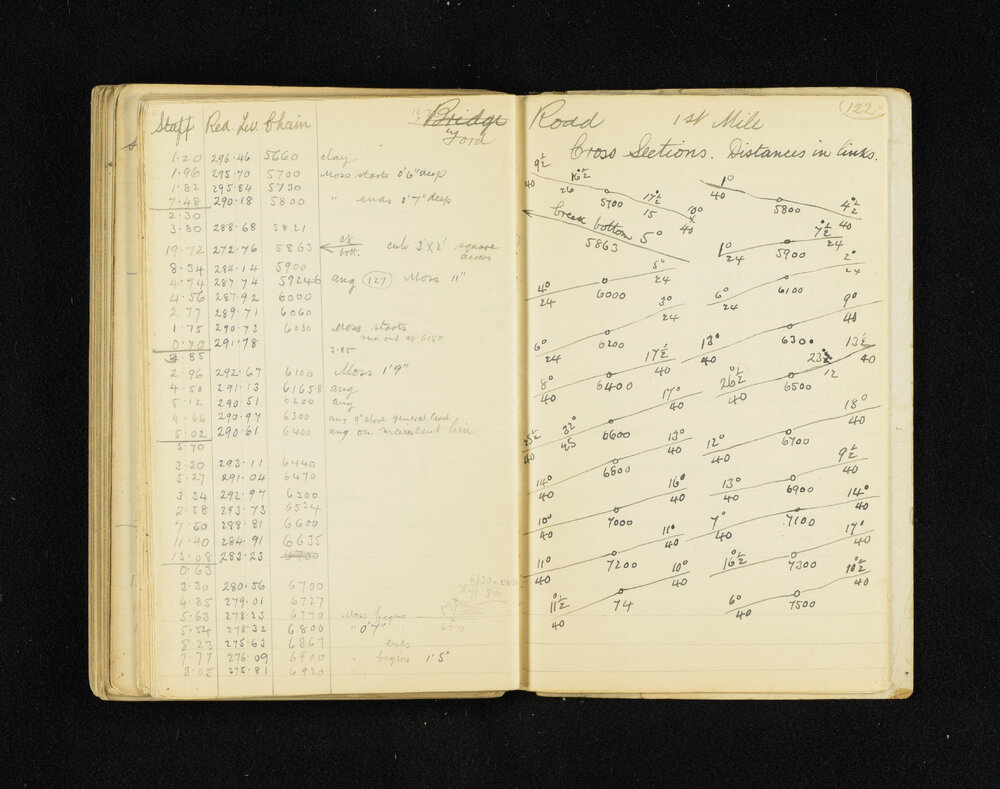 Bridge Road 1st Mile
Ford
122
Staff Red. Lev Chain
Cross Sections. Distances in links.
1.20 296.46 5660 clay
1.96 295.70 5700 Moss starts 0'6" deep
1.82 295.84 5730
7.48 290.18 5800 " ends 0'7" deep
2.30
3.80 288.68 5821
19.72 272.76 5863 ck bott. culv 3'x2' square across
8.34 284.14 5900
4.74 287.74 59246 ang 127 Moss 11"
4.56 287.92 6000
2.77 289.71 6060
1.75 290.73 6080 Moss starts
run out at 6150
0.70 291.78
2.85
2.85
2.96 292.67 6100 Moss 1'9"
4.50 291.13 61658 ang
5.12 290.51 6200 ang
4.66 290.97 6300 ang 9" above general level
5.02 290.61 6400 ang on main cent line
5.70
3.20 293.11 6440
5.27 291.04 6470
3.34 292.97 6500
2.58 293.73 6534
7.50 288.81 6600
11.40 284.91 6635
13.08 283.23 6700
0.63
3.30 280.56 6700
4.85 279.01 6727
5.63 278.23 6770 Moss begins
5.54 278.32 6800 "0'7"
8.23 275.63 6867 ends
7.77 276.09 6900 " begins 1'5"
8.05 275.81 6920
9½ 40
16½° 26
5700
17½° 15
10° 40
1°
5800
4½° 40
break bottom 5°
5863
1° 24
5900
7½° 24
4° 24
6000
5° 24
6° 24
6100
2° 24
6° 24
6200
3° 24
13° 40
6300
9° 40
8° 40
6400
17½ 40
26½° 40
6500
23½ 12
13½ 40
25½ 40
32° 25
6600
17° 40
12° 40
6700
18° 40
14° 40
6800
13° 40
13° 40
6900
9½ 40
10° 40
7000
16° 40
7° 40
7100
14° 40
11° 40
7200
11° 40
16½° 40
7300
17° 40
11½° 40
74
10° 40
6° 40
7500
10½° 40